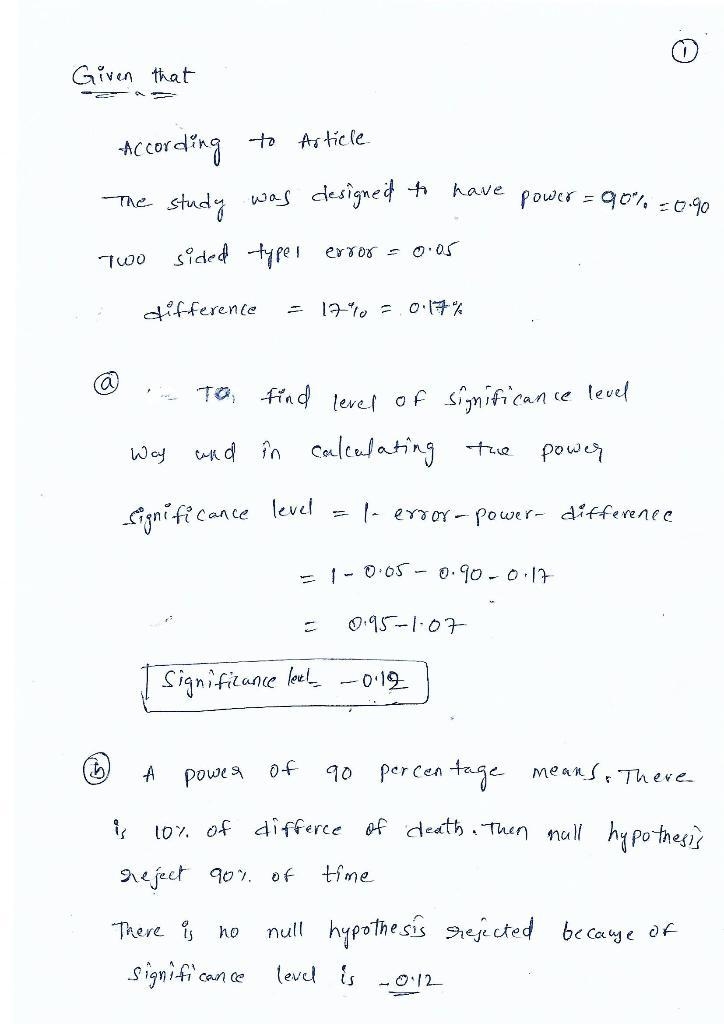 1
Given that
According to Article
The study was designed to have power = 90% = 0.90
Two sided type1 error = 0.05
difference = 17% = 0.17%
(a) To, find level of significance level
Way und in calculating the power
Significance level = 1 - error - power - difference
= 1 - 0.05 - 0.90 - 0.17
= 0.95 - 1.07
Significance level = - 0.12
(b) A power of 90 percentage means. There
is 10% of differce of death. Then null hypothesis
reject 90% of time
There is no null hypothesis rejected because of
Significance level is - 0.12